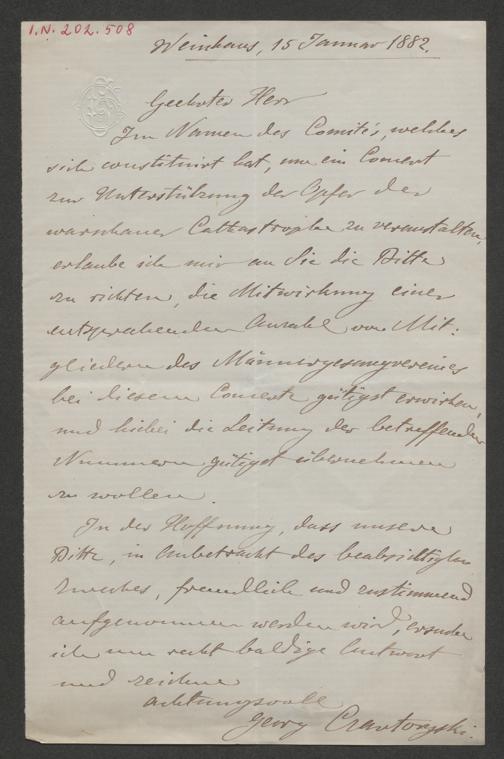 I.N. 202.508
Weinhaus, 15 Januar 1882.
Geehrter Herr
Im Namen des Comité's, welches
sich constituirt hat, um ein Concert
zur Unterstützung der Opfer der
warschauer Cattastrophe zu veranstalten,
erlaube ich mir an Sie die Bitte
zu richten, die Mitwirkung einer
entsprechenden Anzahl von Mit:
gliedern des Männergesangvereines
bei diesem Concerte gütigst erwirken,
und hiebei die Leitung der betreffenden
Nummern gütigst übernehmen
zu wollen.
In der Hoffnung, dass unsere
Bitte, in Anbetracht des beabsichtigten
Zweckes, freundlich und zustimmend
aufgenommen werden wird, ersuche
ich um recht baldige Antwort
und zeichne
achtungsvoll
Georg Czartoryski.